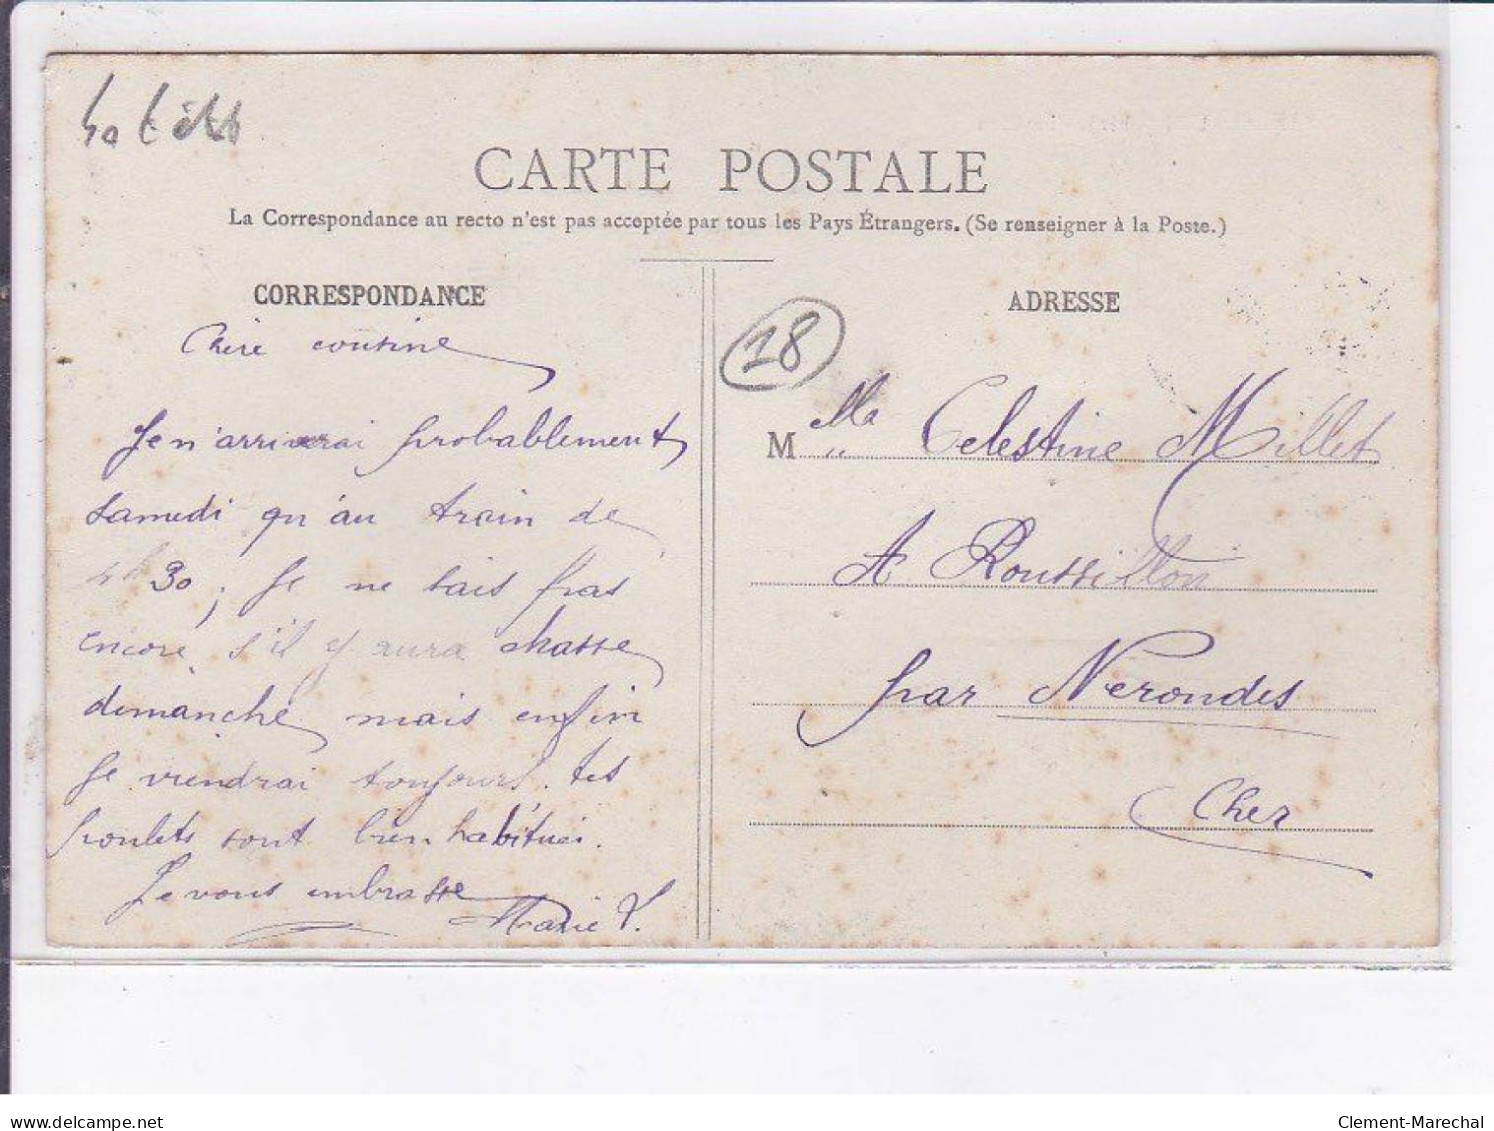 CARTE POSTALE
La Correspondance au recto n'est pas acceptée par tous les Pays Étrangers. (Se renseigner à la Poste.)
CORRESPONDANCE
Chère cousine
Je n'arriverai probablement
samedi qu'au train de
4h30; Je ne sais pas
encore s'il y aura chasse
dimanche mais enfin
je viendrai toujours. tes
poulets sont bien habitués.
Je vous embrasse
Marie L.
18
ADRESSE
Mlla Celestine Millet
A Roussillon
par Nerondes
Cher
delcampe.net
Clement-Marechal